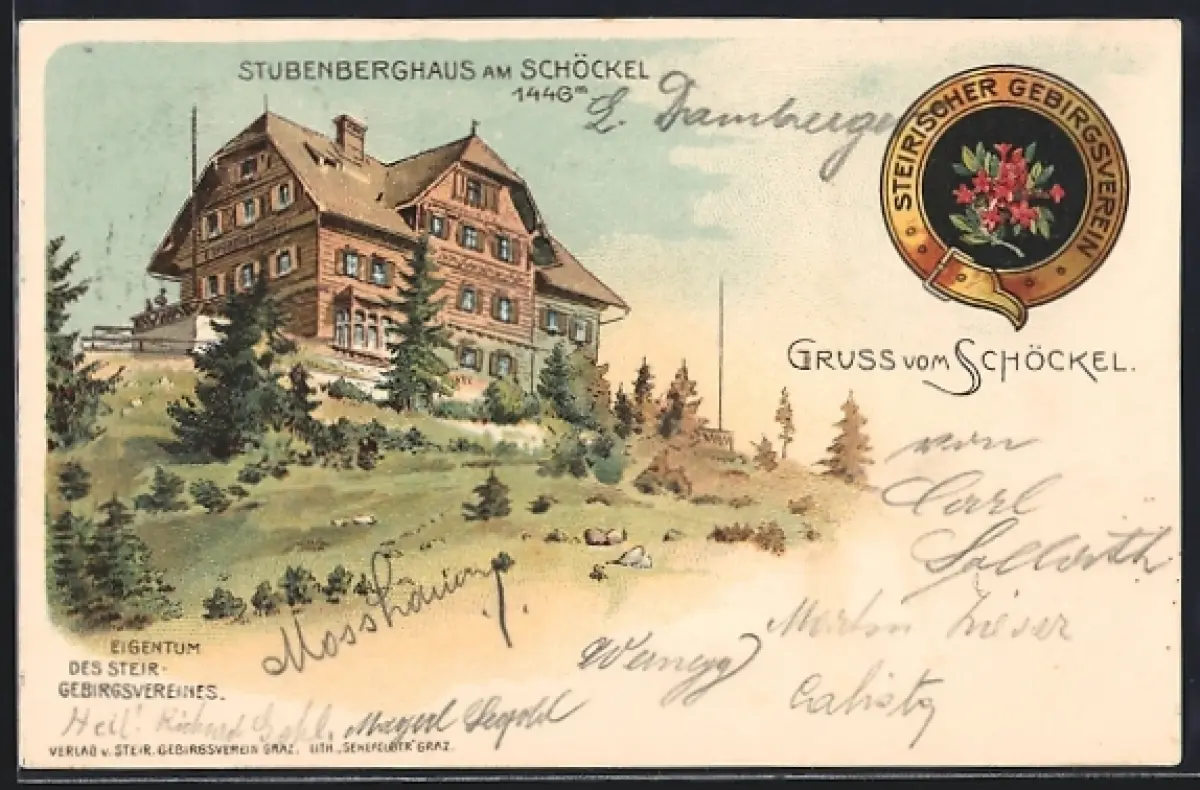 STUBENBERGHAUS AM SCHÖCKEL
1446m
L. Damberger
STEIRISCHER GEBIRGSVEREIN
GRUSS VOM SCHÖCKEL.
von
Carl
Martin
Calista
Wenegg
EIGENTUM
DES STEIR.
GEBIRGSVEREINES.
Heil! Richard
VERLAG v. STEIR. GEBIRGSVEREIN GRAZ. LITH. „SENEFELDER" GRAZ.